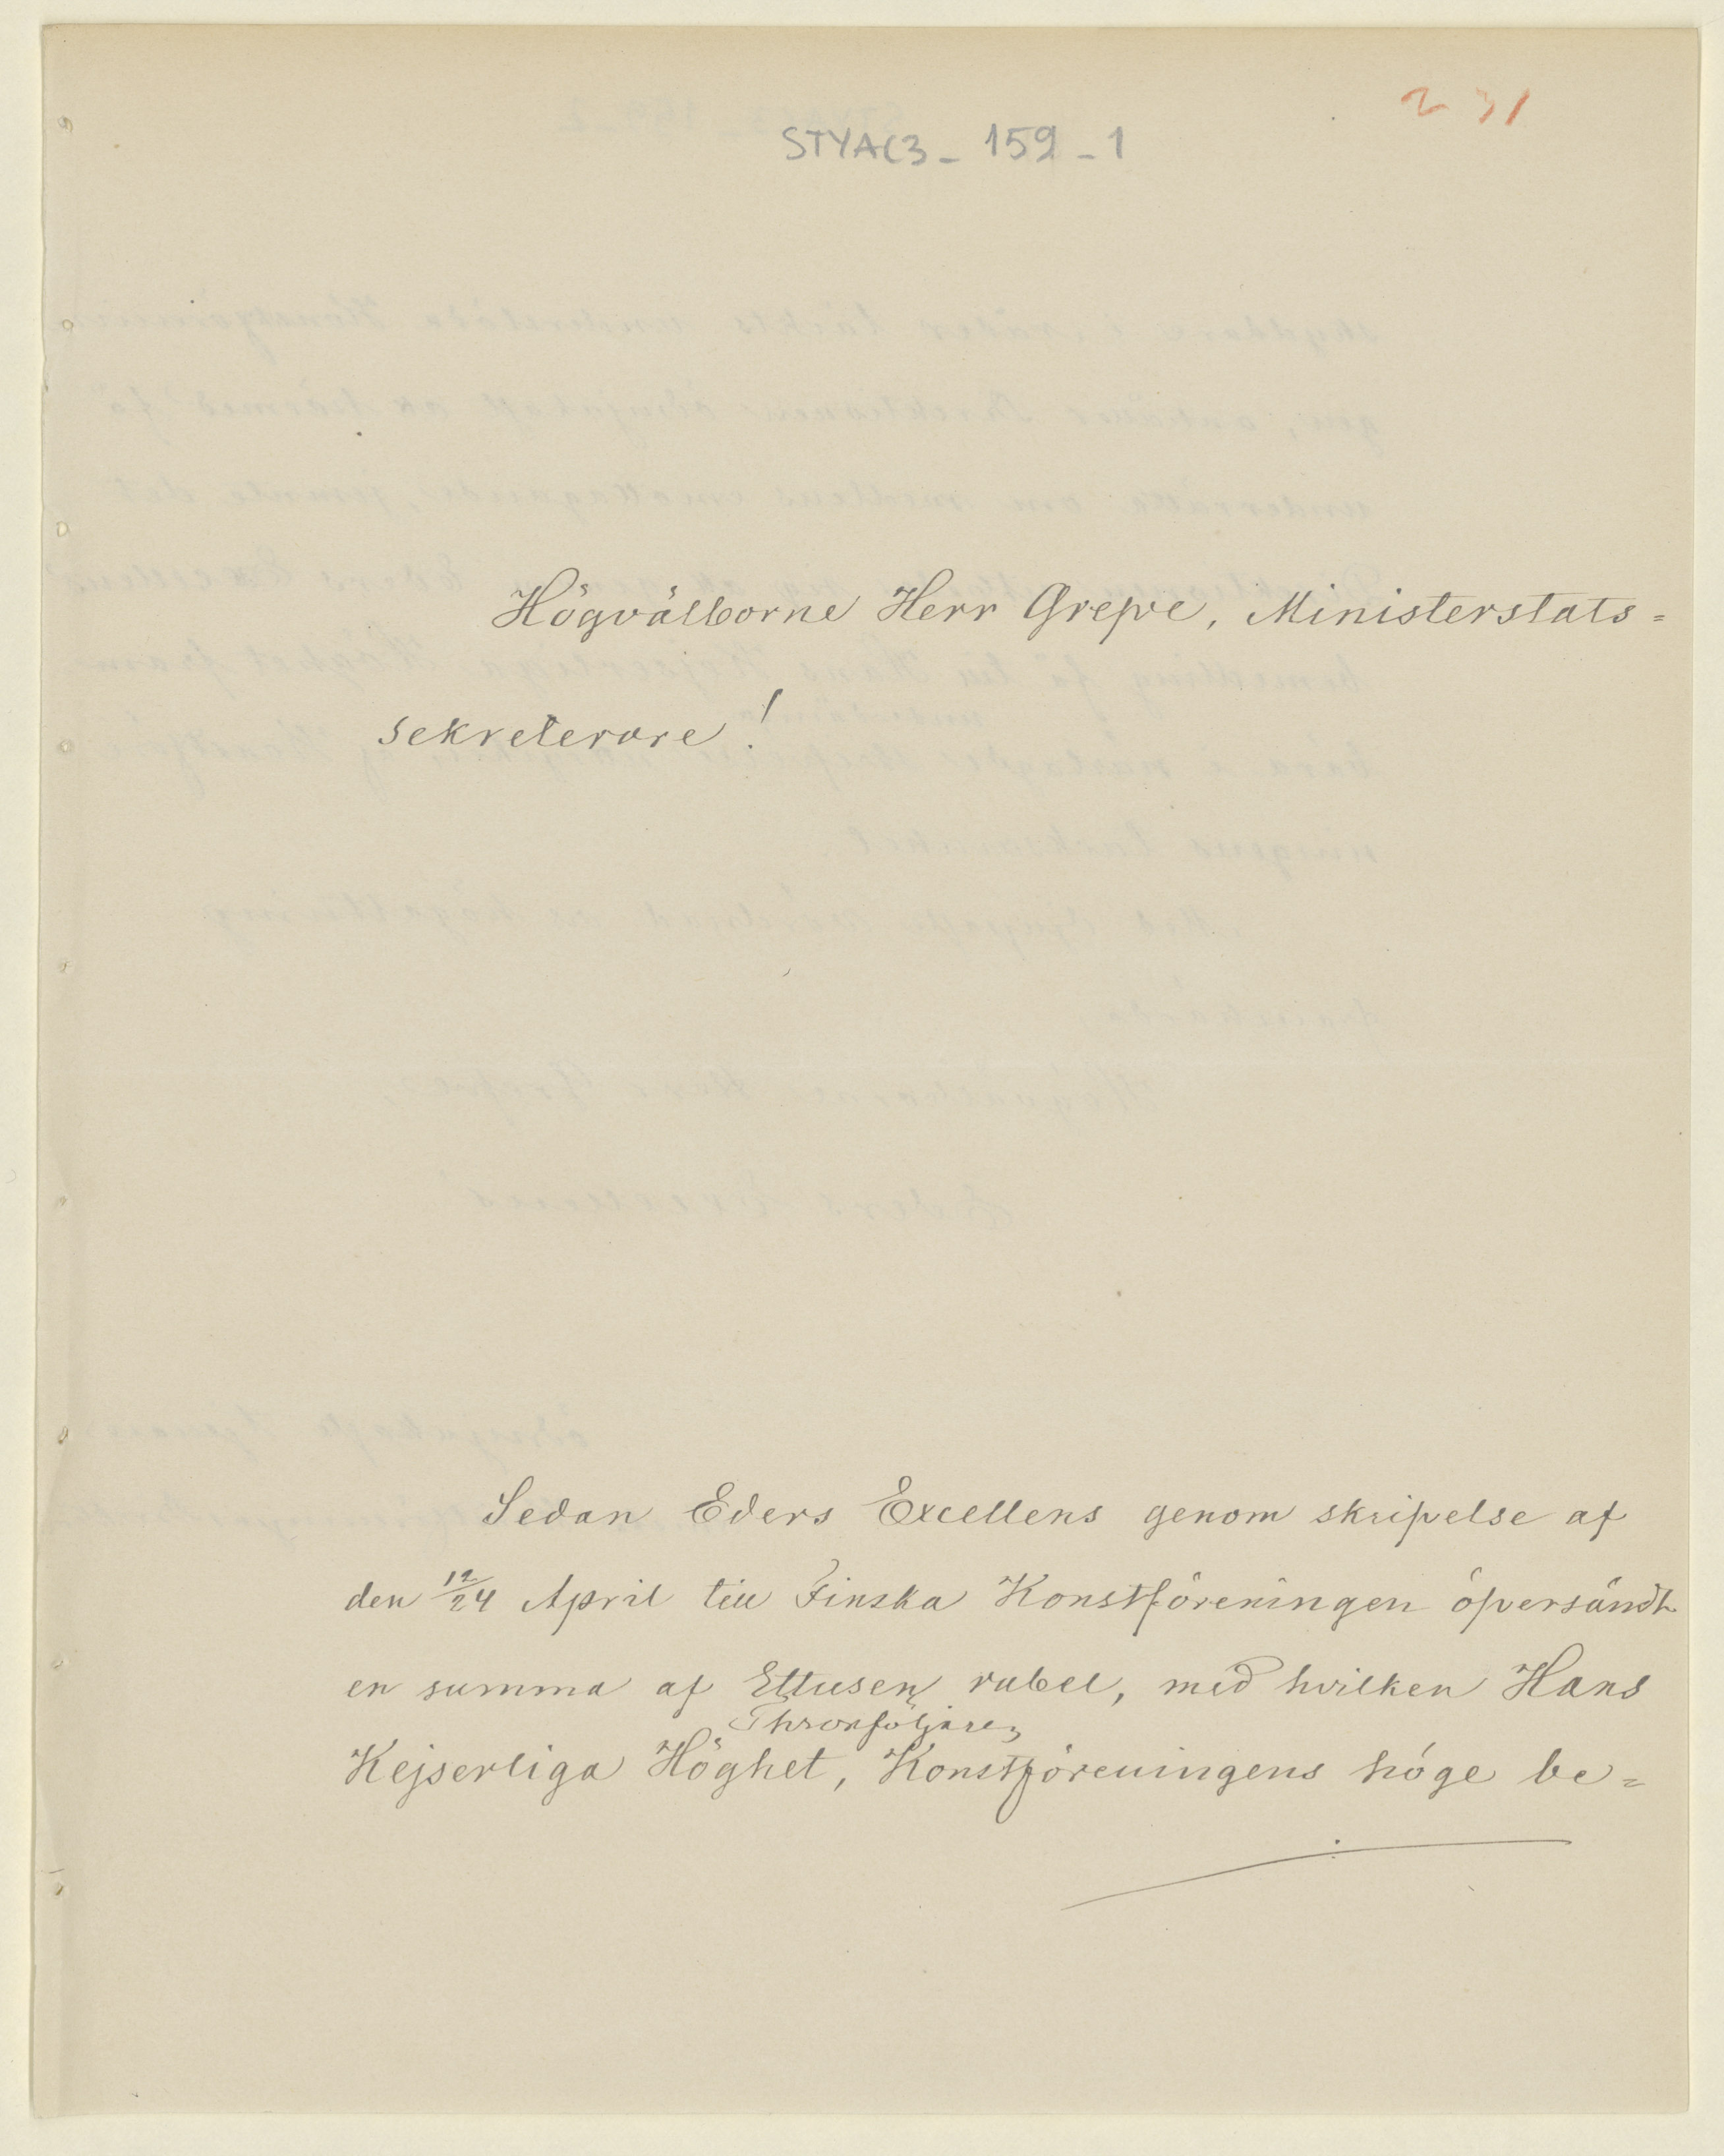 231
STYAC3_159_1
Högvälborne Herr Grefve, Ministerstats=
sekreterare!
Sedan Eders Excellens genom skrifvelse af
den 12/24 April till Finska Konstföreningen öfversändt
en summa af Ettusen rubel, med hvilken Hans
Thronföljaren
Kejserliga Höghet, Konstföreningens höge be=